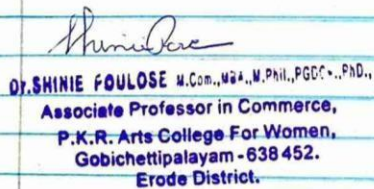 Dr.SHINIE POULOSE M.Com.,MBA.,M.Phil.,PGDC..,PhD.,
Associate Professor in Commerce,
P.K.R. Arts College For Women,
Gobichettipalayam - 638 452.
Erode District.